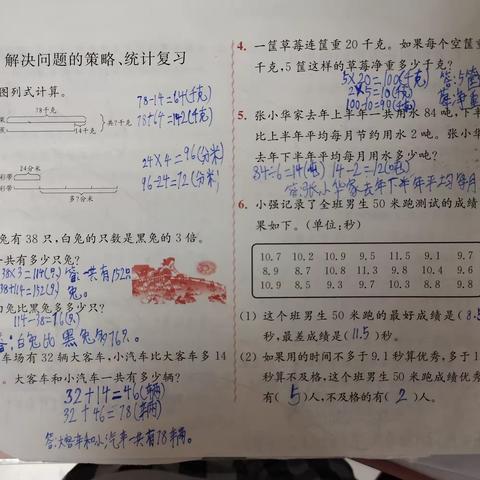 解决问题的策略、统计复习
图列式计算。
78千克
共?千克
14千克
78-14=64(千克)
78+64=142(千克)
24分米
彩带
彩带
多?分米
24×4=96(分米)
96-24=72(分米)
兔有 38 只,白兔的只数是黑兔的 3 倍。
一共有多少只兔?
38×3=114(只) 答:一共有152只
38+114=152(只) 兔。
白兔比黑兔多多少只?
114-38=76(只)
答:白兔比黑兔多76只。
车场有 32 辆大客车,小汽车比大客车多 14
。大客车和小汽车一共有多少辆?
32+14=46(辆)
32+46=78(辆)
答:大客车和小汽车一共有78辆。
4. 一筐草莓连筐重 20 千克。如果每个空筐重
千克,5 筐这样的草莓净重多少千克?
5×20=100(千克) 答:5筐
2×5=10(千克) 草莓净重
100-10=90(千克)
5. 张小华家去年上半年一共用水 84 吨,下半
比上半年平均每月节约用水 2 吨。张小华
去年下半年平均每月用水多少吨?
84÷6=14(吨) 14-2=12(吨)
答:张小华家去年下半年平均每月
6. 小强记录了全班男生 50 米跑测试的成绩
果如下。(单位:秒)
10.7 10.2 10.9 9.5 11.5 9.1 9.7
8.9 8.7 10.8 11.3 9.8 10.4 9.6
10.9 8.5 9.3 9.7 9.0 10.8 9.
(1) 这个班男生 50 米跑的最好成绩是( 8.5
秒,最差成绩是( 11.5 )秒。
(2) 如果用的时间不多于 9.1 秒算优秀,多于 1
秒算不及格,这个班男生 50 米跑成绩优秀
有( 5 )人,不及格的有( 2 )人。